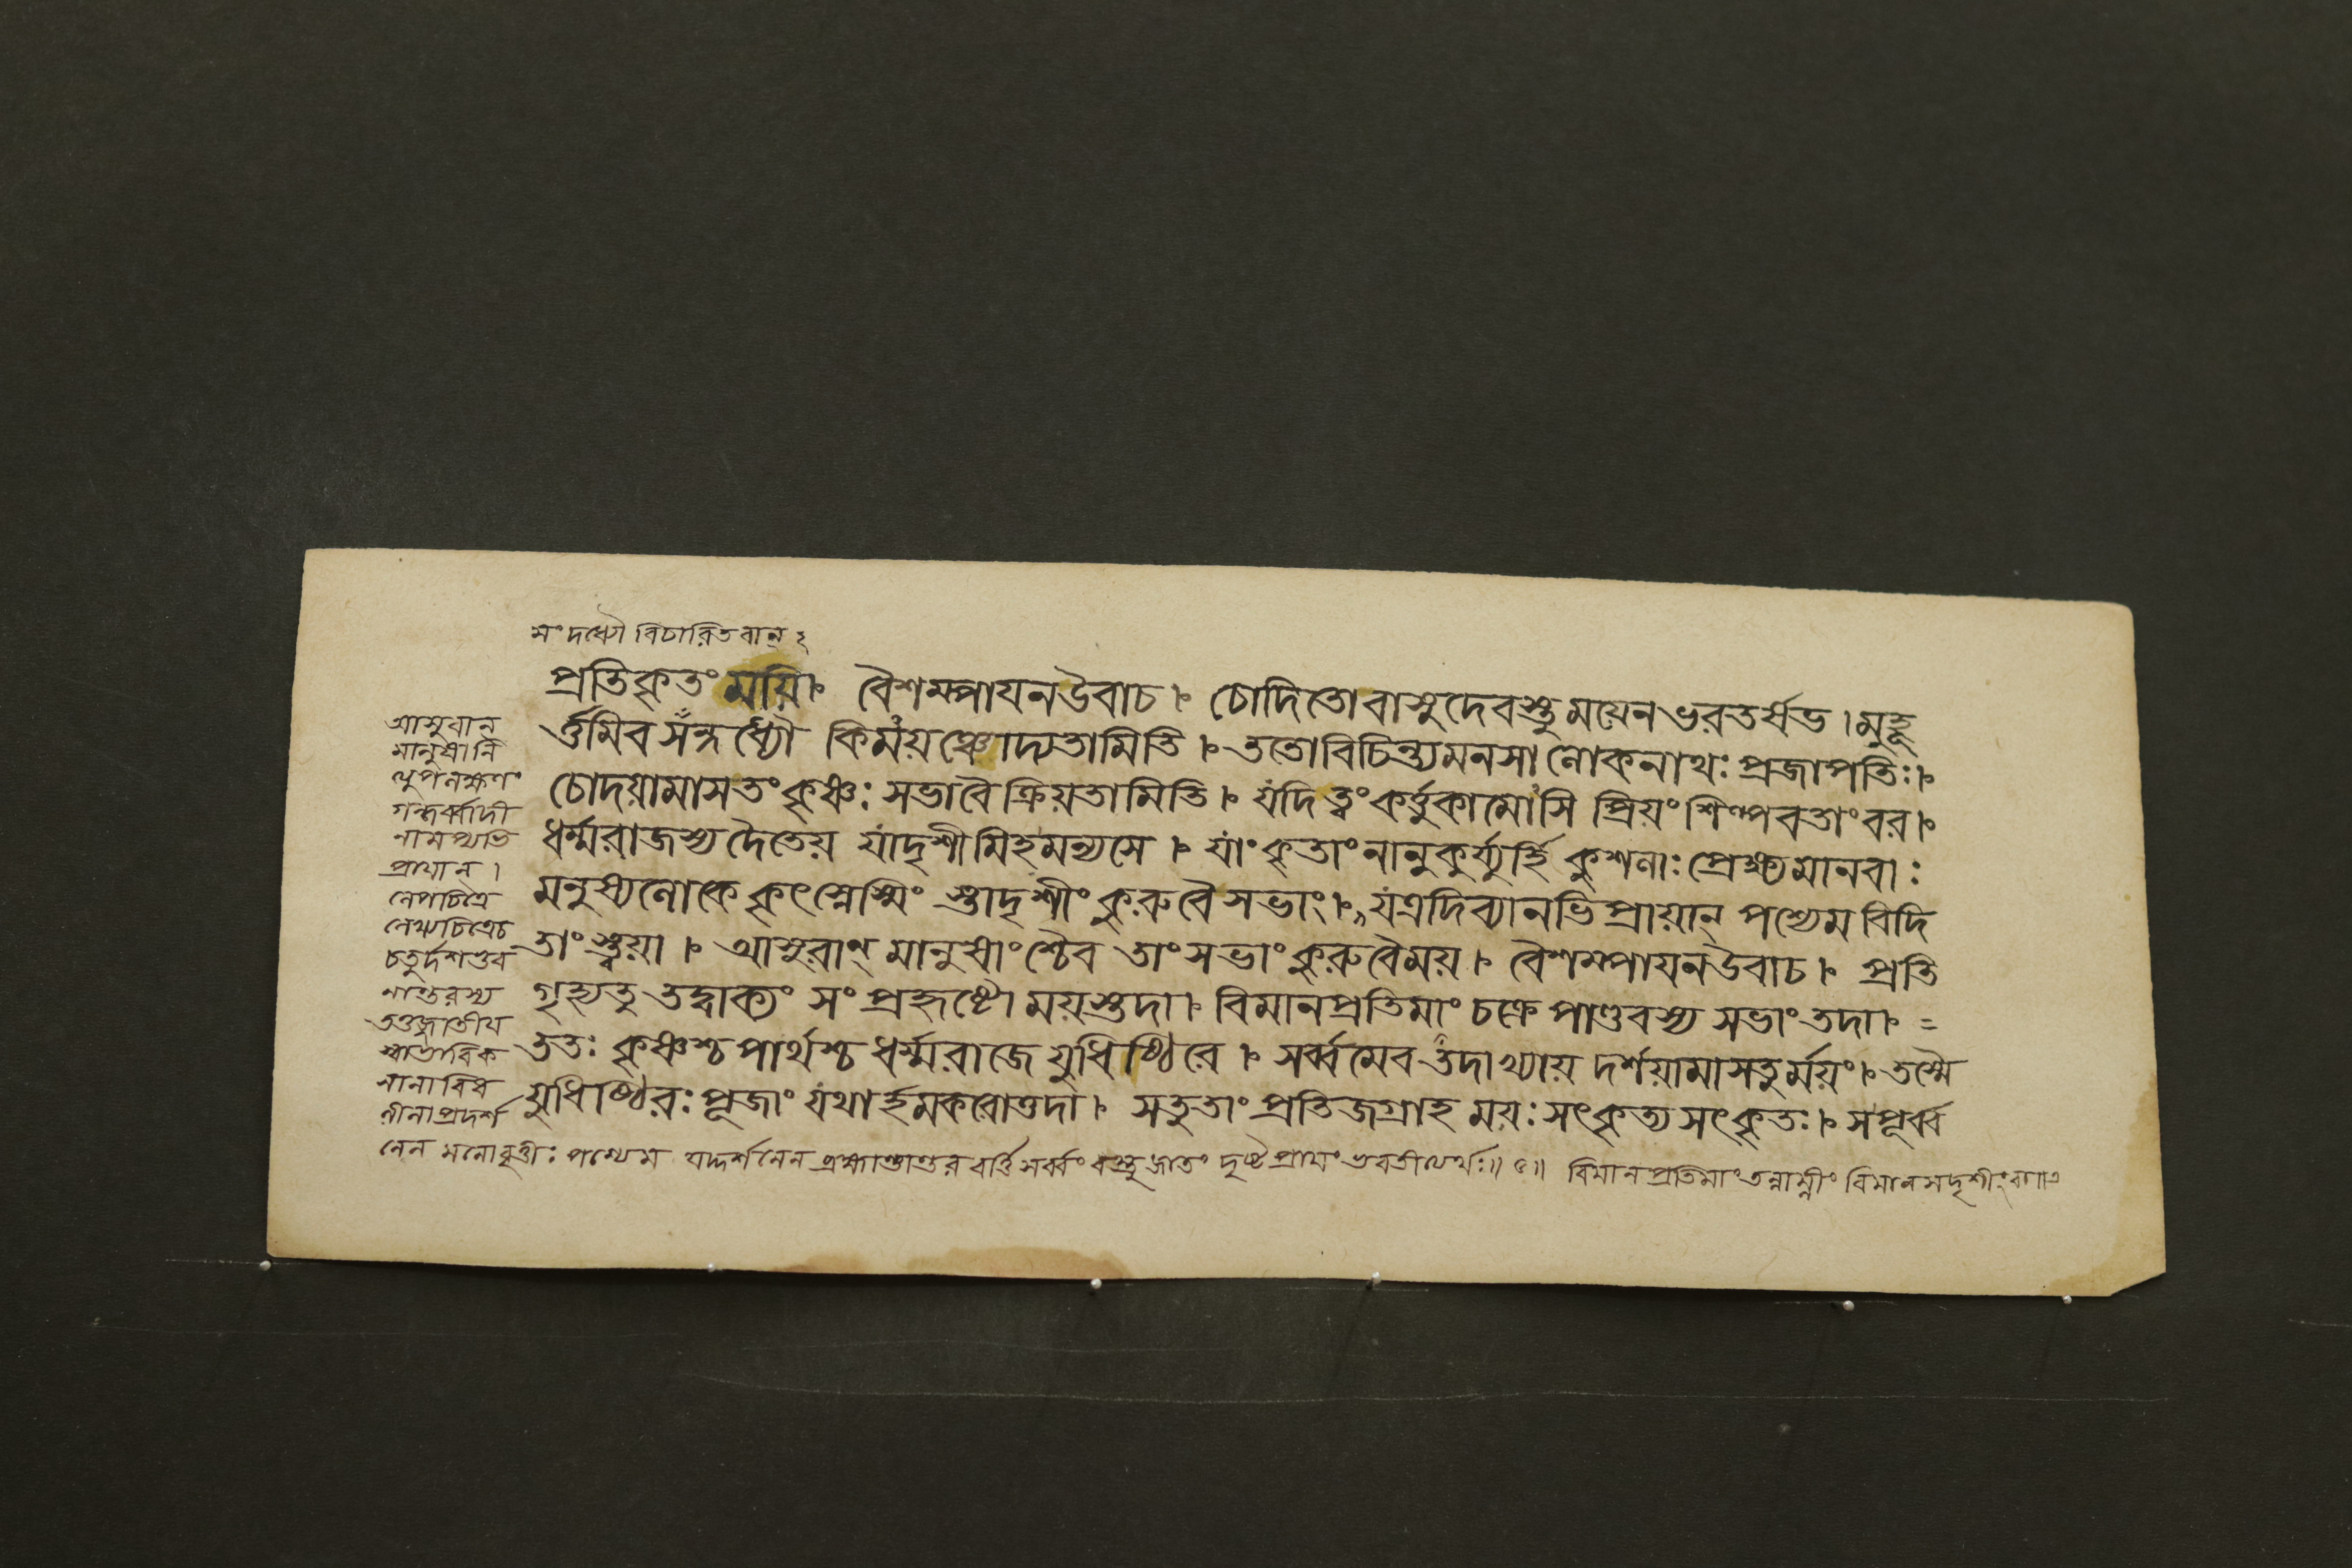 সংদধ্যৌ বিচারিতবান্ ২
প্রতিকৃতং ময়ি ৷৷ বৈশম্পাযনউবাচ ৷৷ চোদিতোবাসুদেবস্তু ময়েনভরতর্ষভ ৷ মুহূ
র্ত্তমিবসন্দধ্যৌ কিময়ঞ্চোদ্যতামিতি ৷৷ ততোবিচিন্ত্যমনসা লোকনাথঃ প্রজাপতিঃ ৷৷
চোদয়ামাসতংকৃষ্ণঃ সভাবৈক্রিয়তামিতি ৷৷ যদি ত্বংকর্ত্তুকামোসি প্রিয়ংশিল্পবতাংবর ৷৷
ধর্ম্মরাজস্যদৈতেয় যাদৃশীমিহমন্যসে ৷৷ যাংকৃতাংনানুকুর্য্যুর্হি কুশলাঃপ্রেক্ষ্যমানবাঃ
মনুষ্যলোকে কৃৎস্নেস্মিং স্তাদৃশীংকুরুবৈসভাং ৷৷ যত্রদিব্যানভিপ্রায়ান্ পশ্যেমবিদি
তাংস্ত্বয়া ৷৷ আসুরাণ্ মানুষাংশ্চৈব তাংসভাংকুরুবৈময় ৷৷ বৈশম্পাযনউবাচ ৷৷ প্রতি
গৃহ্যতু তদ্বাক্যং সংপ্রহৃষ্টো ময়স্তদা ৷৷ বিমানপ্রতিমাং চক্রে পাণ্ডবস্য সভাংতদা ৷৷ =
ততঃ কৃষ্ণশ্চ পার্থশ্চ ধর্ম্মরাজে যুধিষ্ঠিরে ৷৷ সর্ব্বমেবতদাখ্যায় দর্শয়ামাসতুর্ময়ং ৷৷ তস্মৈ
যুধিষ্ঠিরঃপূজাং যথার্হমকরোত্তদা ৷৷ সতুতাং প্রতিজগ্রাহ ময়ঃ সৎকৃত্যসৎকৃতঃ ৷৷ সপূর্ব্ব
আসুরান্
মানুষানি
ত্যুপলক্ষণং
গন্ধর্ব্বাদী
নামপ্যভি
প্রায়ান্ ৷
লেপচিত্রে
লেখ্যচিত্রেচ
চতুর্দশভুব
নান্তরস্য
তত্তজ্জাতীয়
স্বাভাবিক
নানাবিধ
লীলাপ্রদর্শ
নেন মনোবৃত্তীঃ পশ্যেম যদ্দর্শনেন ব্রহ্মাণ্ডান্তরবর্ত্তি সর্ব্বং বস্তুজাতং দৃষ্টপ্রায়ং ভবতীত্যর্থঃ ॥ ৫ ॥ বিমানপ্রতিমাং তন্নাম্নীং বিমানসদৃশীংবা ॥